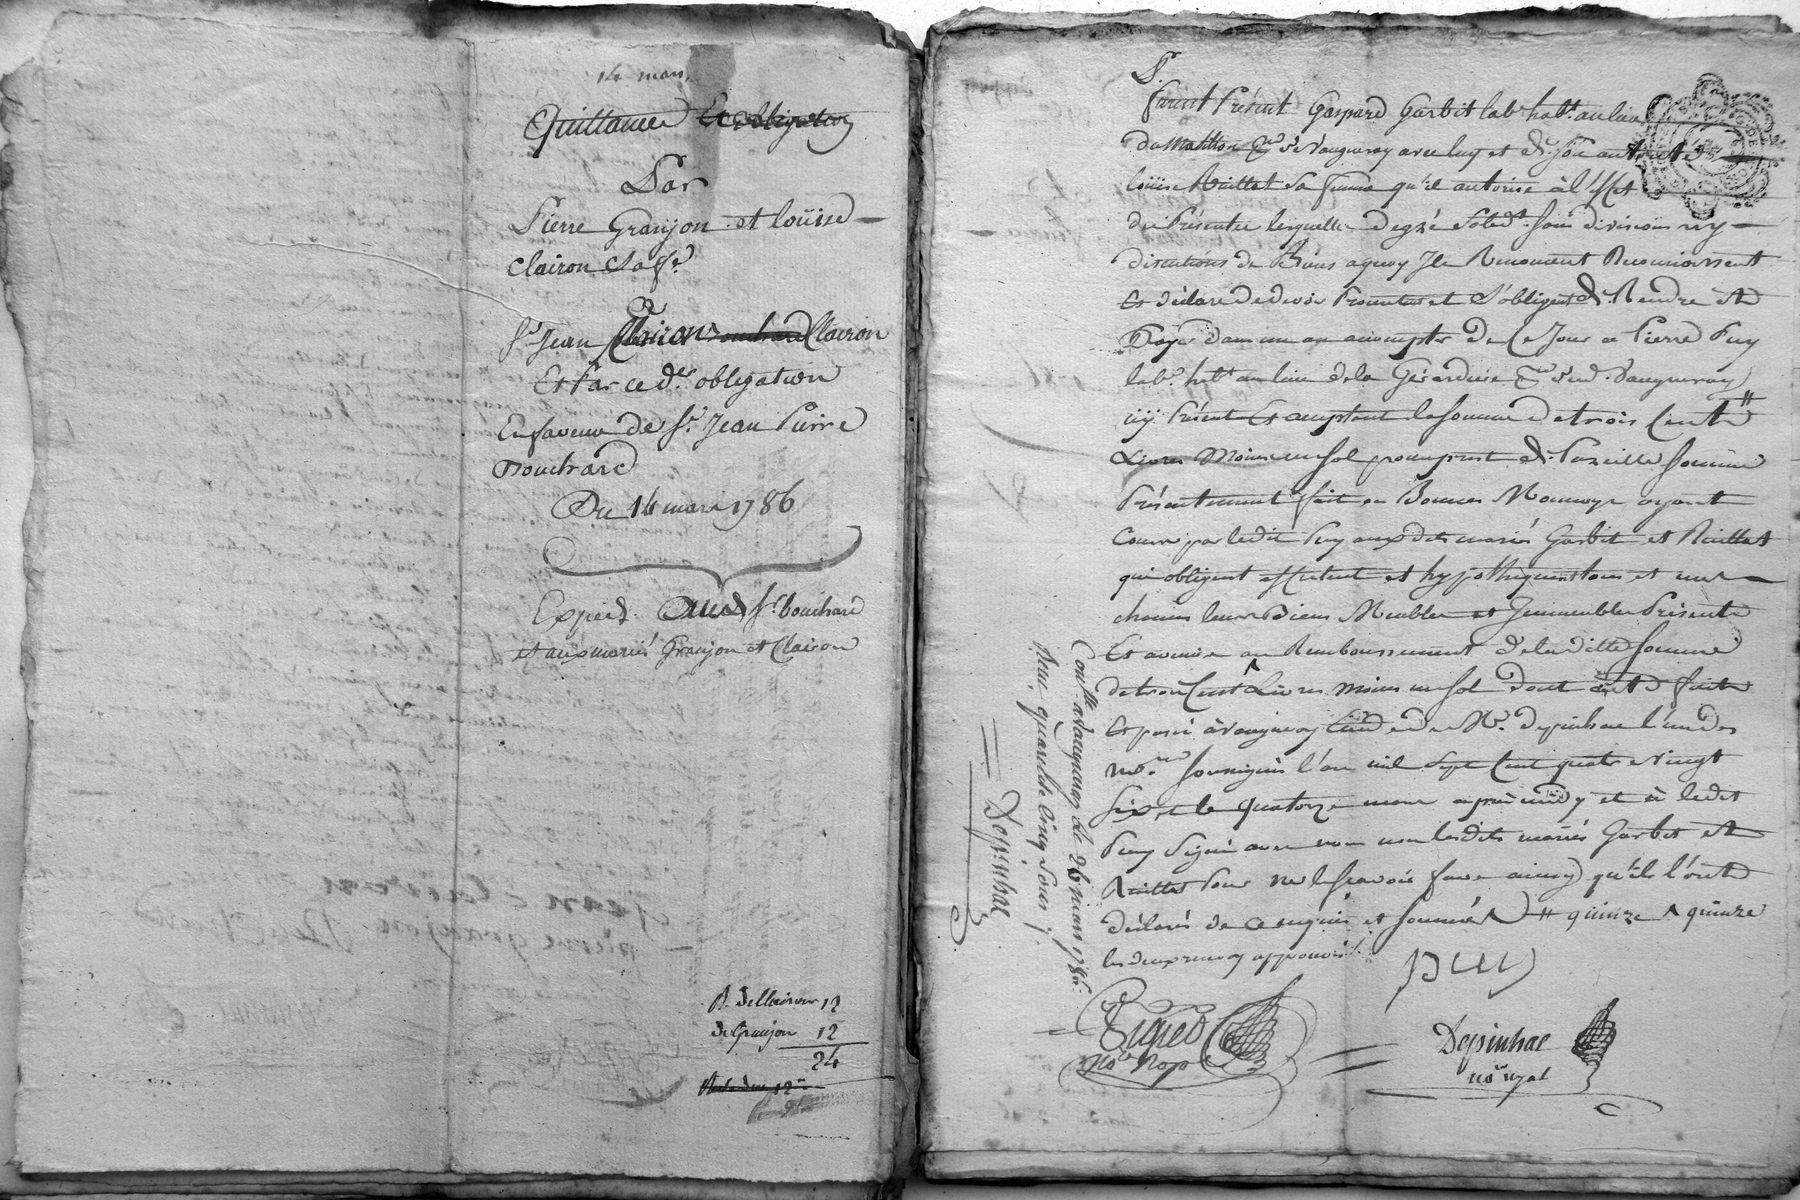 14 mars
Quittance et obligation
Par
Pierre Granjon et Loüise
Clairon sa fe.
à
Sr. Jean Clairon Bouchard Clairon
Et Par ce der. obligation
En faveur de Sr. Jean Pierre
Bouchard
Du 14 mars 1786
Exped. aud. Sr. bouchard
et aux mariés Granjon et Clairon
R. de Clairon 12
de Granjon 12
24
12
P.
furent Présent Gaspard Garbit lab. habt. au lieu
du Mathion psse. de Vaugneray avec luy et de son autorité
Loüise Raillat sa femme qu'il autorise à l'effet
des Présentes lesquelles de gré solidt. sans division ny
discutions de Biens a quoy Ils Renoncent Reconnoissent
Et déclare de devoir Promettent et s'obligent de Rendre et
Payer dans un an a compter de Ce Jour a Pierre Puy
lab. habt. au lieu de la Gérardiere psse. dud. Vaugneray
icy Présent Et acceptant la somme de trois Cent #
Livres Moins un sol pour prest de Pareille somme
Présentement fait en Bonnes Monnoye ayant
Cours par ledit Puy auxdits mariés Garbit et Raillat
qui obligent affectent et hypothequent tous et un
chacuns leurs Biens Meubles et Immeubles Présents
Et avenir au Remboursement de la ditte somme
de trois Cent ^ Livres moins un sol dont acte fait
Et passé à Vaugneray Etude de Me. depinhac l'un des
nores. soussignés l'an mil sept Cent quatre vingt
six et le quatorze mars après midy et a ledit
Puy signé avec nous non lesdits mariés Garbit et
Raillat Pour ne le sçavoir faire ainsy qu'ils l'ont
déclarés de ce enquis et sommés # quinze ^ quinze
les deux renvoy approuvés
puy
nore. Royal
Depinhac
nore. royal
Conllé. a Vaugneray le 26 mars 1786.
Reçu quarente Cinq sous
Depinhac